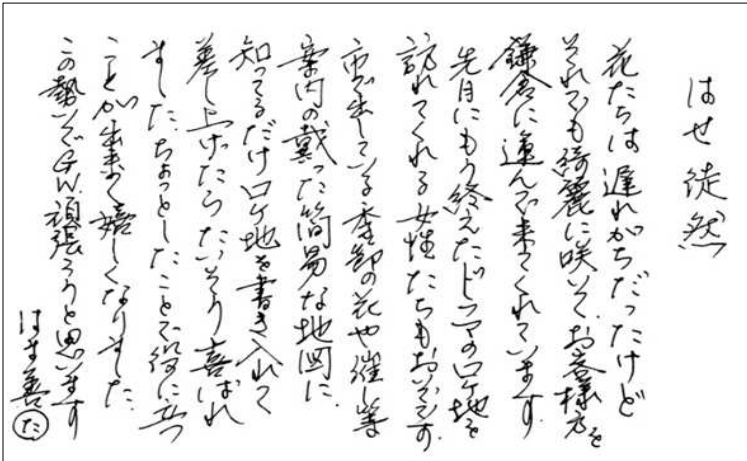 はせ徒然
花たちは遅れがちだったけど
それでも綺麗に咲いて、お客様方を
鎌倉に運んで来てくれています。
先月にもう終えたドラマのロケ地を
訪れてくれる女性たちもおいでです。
市で出している季節の花や催し等
案内の載った簡易な地図に、
知ってるだけロケ地を書き入れて
差し上げたらたいそう喜ばれ
ました。ちょっとしたことで役に立つ
ことが出来て嬉しくなりました。
この勢いでGW頑張ろうと思います
はま善 た